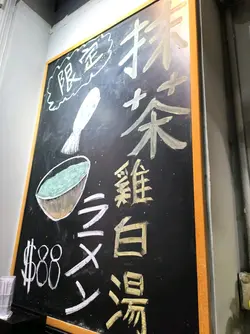 限定
抹茶
雞白湯
ラーメン
$88